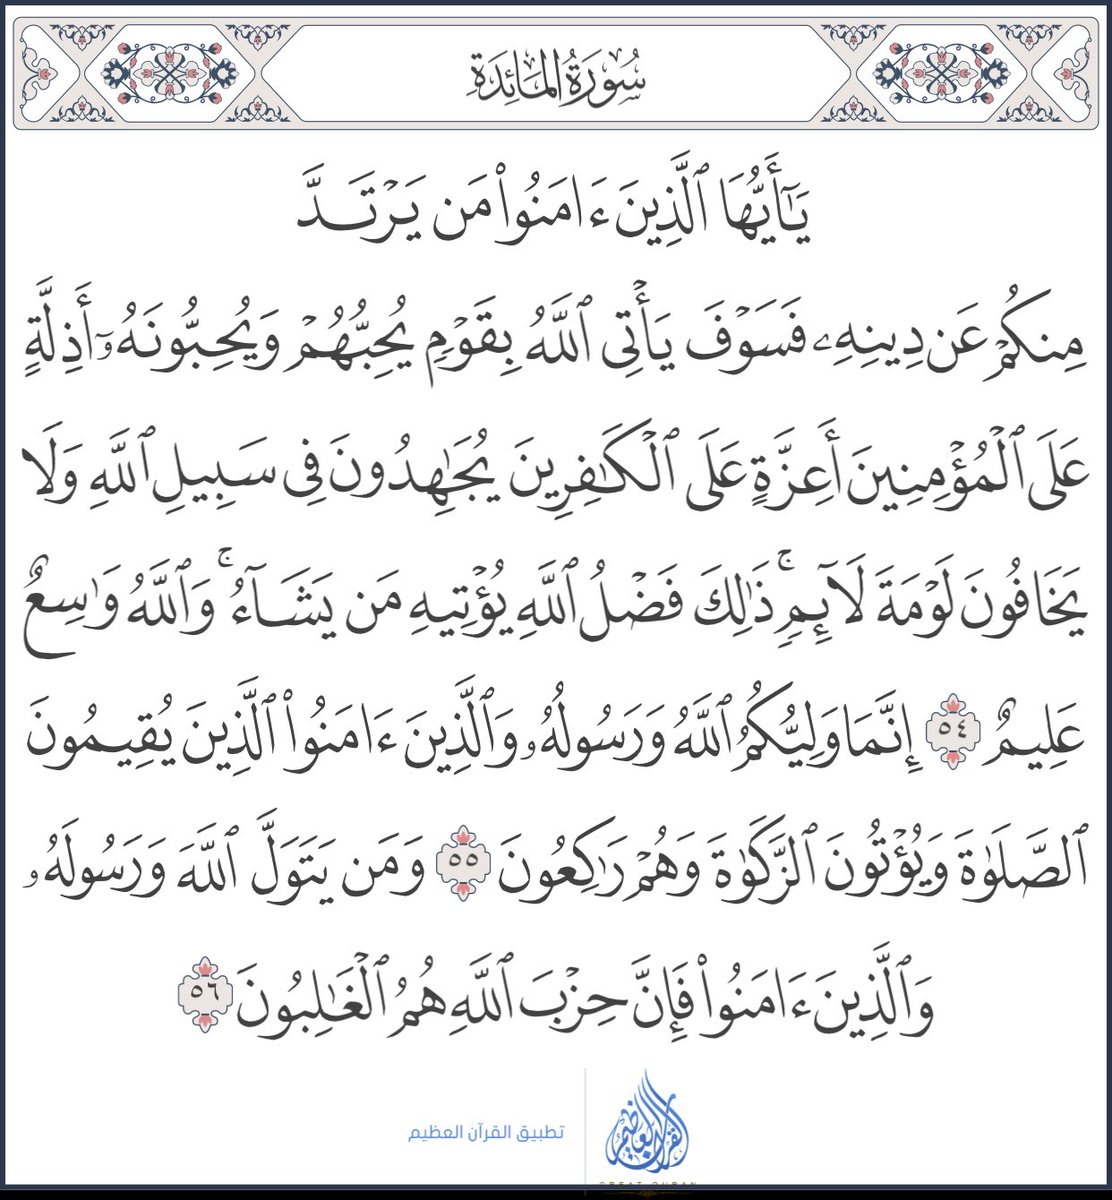 سُورَةُ المَائِدَةِ
يَـٰٓأَيُّهَا ٱلَّذِينَ ءَامَنُوا۟ مَن يَرْتَدَّ
مِنكُمْ عَن دِينِهِۦ فَسَوْفَ يَأْتِى ٱللَّهُ بِقَوْمٍ يُحِبُّهُمْ وَيُحِبُّونَهُۥٓ أَذِلَّةٍ
عَلَى ٱلْمُؤْمِنِينَ أَعِزَّةٍ عَلَى ٱلْكَـٰفِرِينَ يُجَـٰهِدُونَ فِى سَبِيلِ ٱللَّهِ وَلَا
يَخَافُونَ لَوْمَةَ لَآئِمٍ ۚ ذَٰلِكَ فَضْلُ ٱللَّهِ يُؤْتِيهِ مَن يَشَآءُ ۚ وَٱللَّهُ وَٰسِعٌ
عَلِيمٌ ٥٤ إِنَّمَا وَلِيُّكُمُ ٱللَّهُ وَرَسُولُهُۥ وَٱلَّذِينَ ءَامَنُوا۟ ٱلَّذِينَ يُقِيمُونَ
ٱلصَّلَوٰةَ وَيُؤْتُونَ ٱلزَّكَوٰةَ وَهُمْ رَٰكِعُونَ ٥٥ وَمَن يَتَوَلَّ ٱللَّهَ وَرَسُولَهُۥ
وَٱلَّذِينَ ءَامَنُوا۟ فَإِنَّ حِزْبَ ٱللَّهِ هُمُ ٱلْغَـٰلِبُونَ ٥٦
القرآن العظيم
تطبيق القرآن العظيم
GREAT QURAN